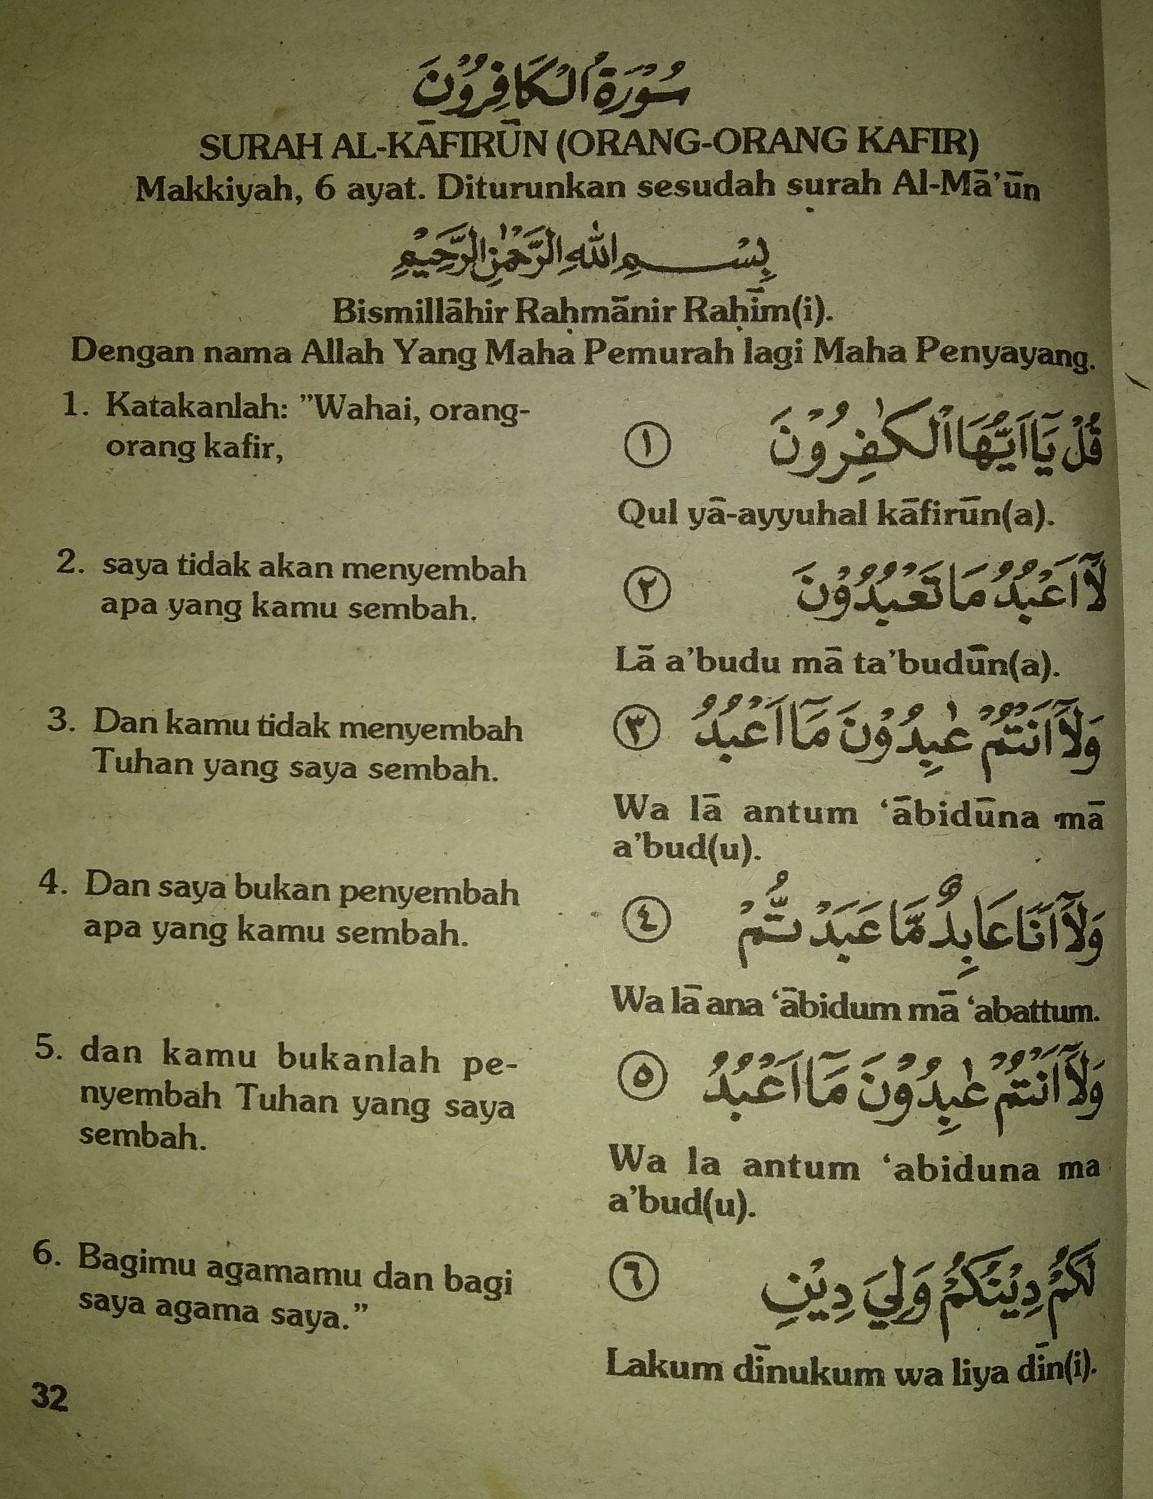 سُوْرَةُ الْكَافِرُوْنَ
SURAH AL-KĀFIRŪN (ORANG-ORANG KAFIR)
Makkiyah, 6 ayat. Diturunkan sesudah surah Al-Mā’ūn
بِسْمِ اللهِ الرَّحْمٰنِ الرَّحِيْمِ
Bismillāhir Raḥmānir Raḥīm(i).
Dengan nama Allah Yang Maha Pemurah lagi Maha Penyayang.
1. Katakanlah: ”Wahai, orang-
orang kafir,
قُلْ يَآاَيُّهَا الْكٰفِرُوْنَ ١
Qul yā-ayyuhal kāfirūn(a).
2. saya tidak akan menyembah
apa yang kamu sembah.
لَآاَعْبُدُ مَا تَعْبُدُوْنَ ٢
Lā a’budu mā ta’budūn(a).
3. Dan kamu tidak menyembah
Tuhan yang saya sembah.
وَلَآاَنْتُمْ عٰبِدُوْنَ مَآاَعْبُدُ ٣
Wa lā antum ‘ābidūna mā
a’bud(u).
4. Dan saya bukan penyembah
apa yang kamu sembah.
وَلَآاَنَا عَابِدٌ مَّا عَبَدْتُّمْ ٤
Wa lā ana ‘ābidum mā ‘abattum.
5. dan kamu bukanlah pe-
nyembah Tuhan yang saya
sembah.
وَلَآاَنْتُمْ عٰبِدُوْنَ مَآاَعْبُدُ ٥
Wa la antum ‘abiduna ma
a’bud(u).
6. Bagimu agamamu dan bagi
saya agama saya.”
لَكُمْ دِيْنُكُمْ وَلِيَ دِيْنِ ٦
Lakum dīnukum wa liya dīn(i).
32